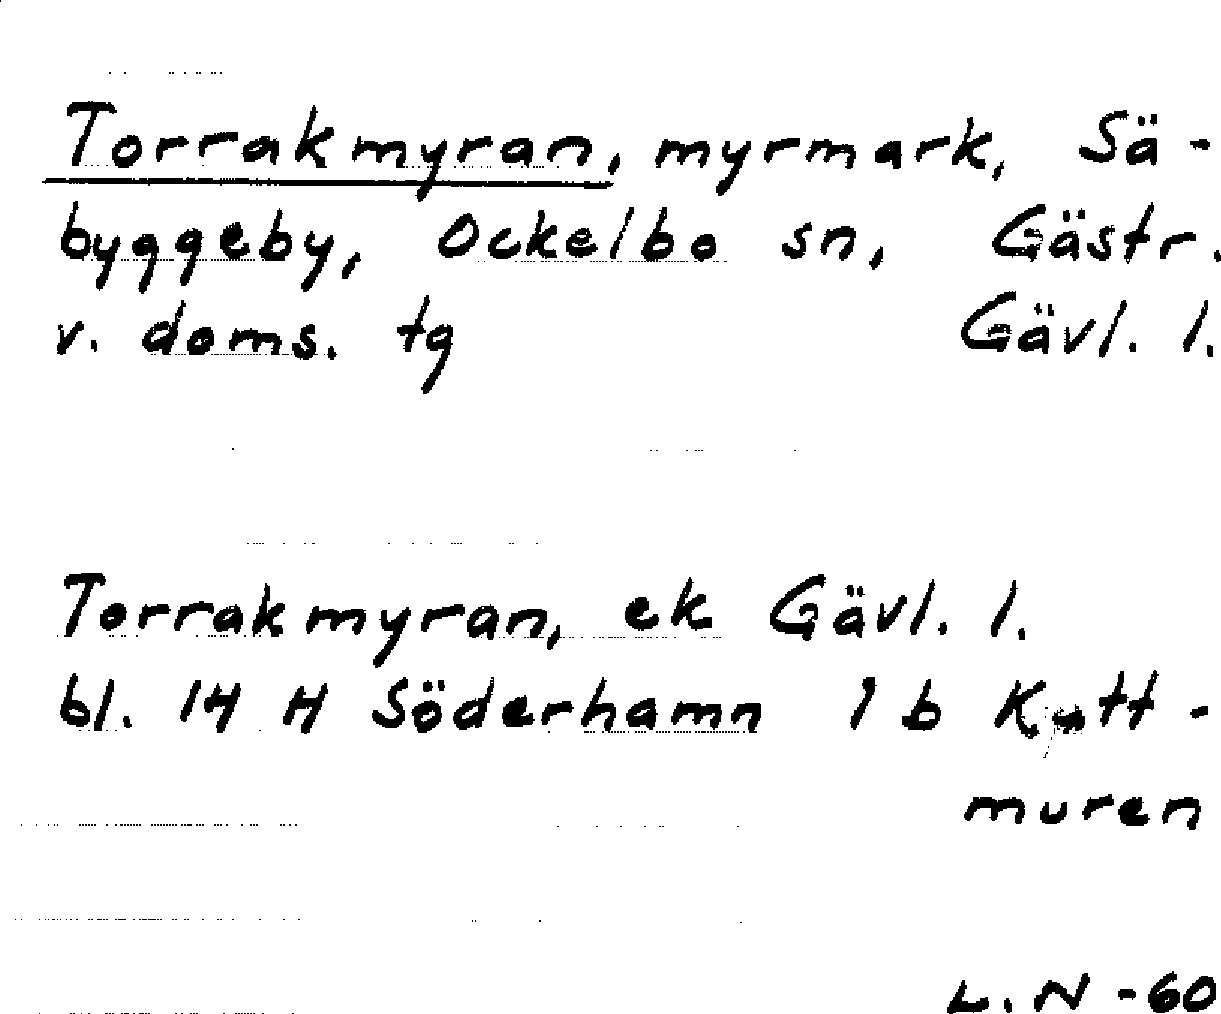 Torrakmyran, myrmark, Sä-
byggeby, Ockelbo sn, Gästr.
v. doms. tg Gävl. l.
Torrakmyran, ek Gävl. l.
bl. 14 H Söderhamn 1 b Kutt-
muren
L. N -60